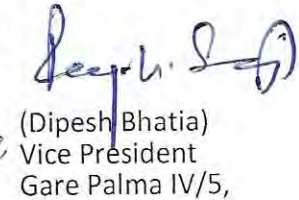 (Dipesh Bhatia)
Vice President
Gare Palma IV/5,